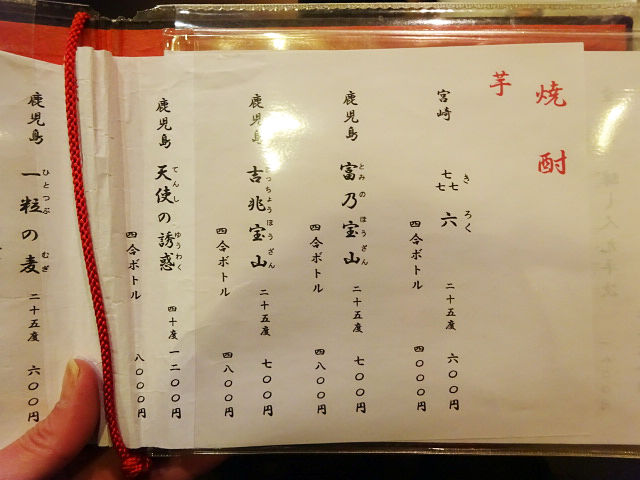 焼酎
芋
宮崎 㐂六 二十五度 六〇〇円
き ろく
四合ボトル 四〇〇〇円
鹿児島 富乃宝山 二十五度 七〇〇円
とみ の ほう ざん
四合ボトル 四八〇〇円
鹿児島 吉兆宝山 二十五度 七〇〇円
きっちょうほう ざん
四合ボトル 四八〇〇円
鹿児島 天使の誘惑 四十度 一二〇〇円
てんし ゆうわく
四合ボトル 八〇〇〇円
鹿児島 一粒の麦 二十五度 六〇〇円
ひとつぶ むぎ